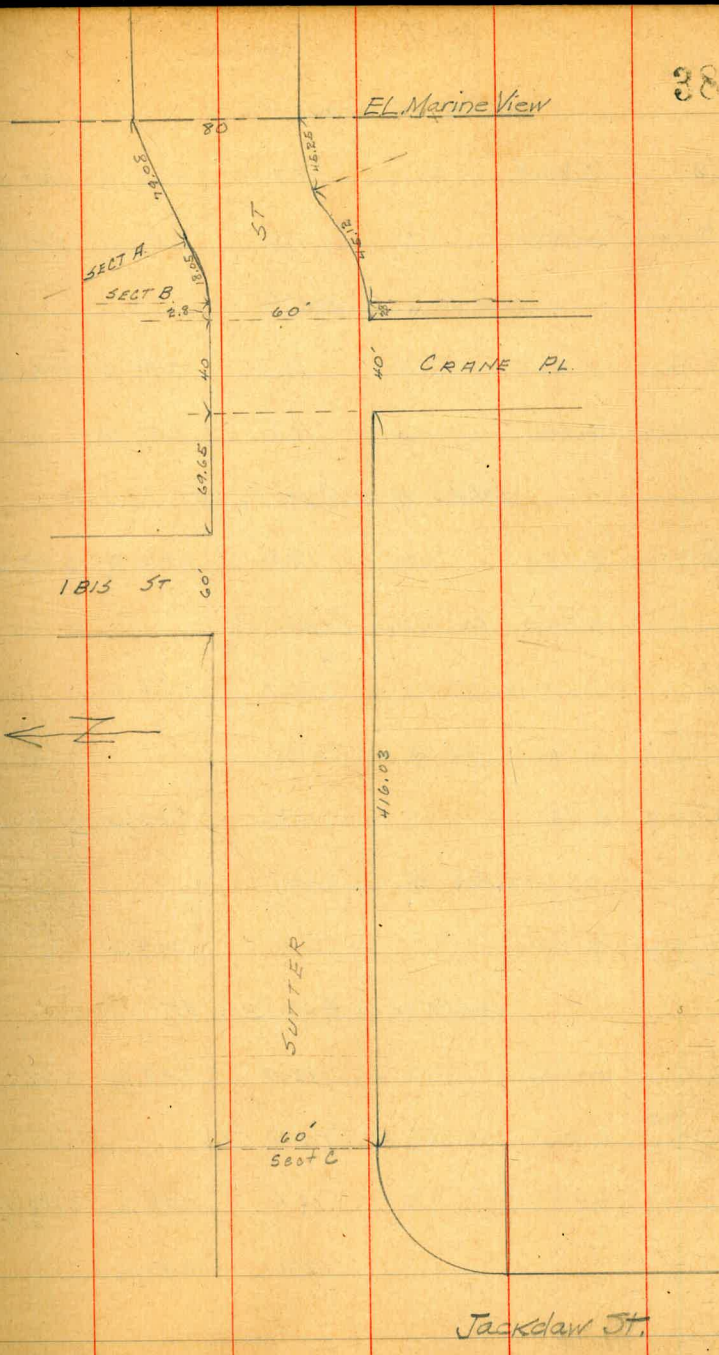 38
EL. Marine View
80
79.08
45.25
ST
SECT A.
18.05
45.12
SECT B
2.8
60'
28
40
40'
CRANE PL.
69.65
IBIS ST
60'
N
416.03
SUTTER
60'
Sect C
Jackdaw St.